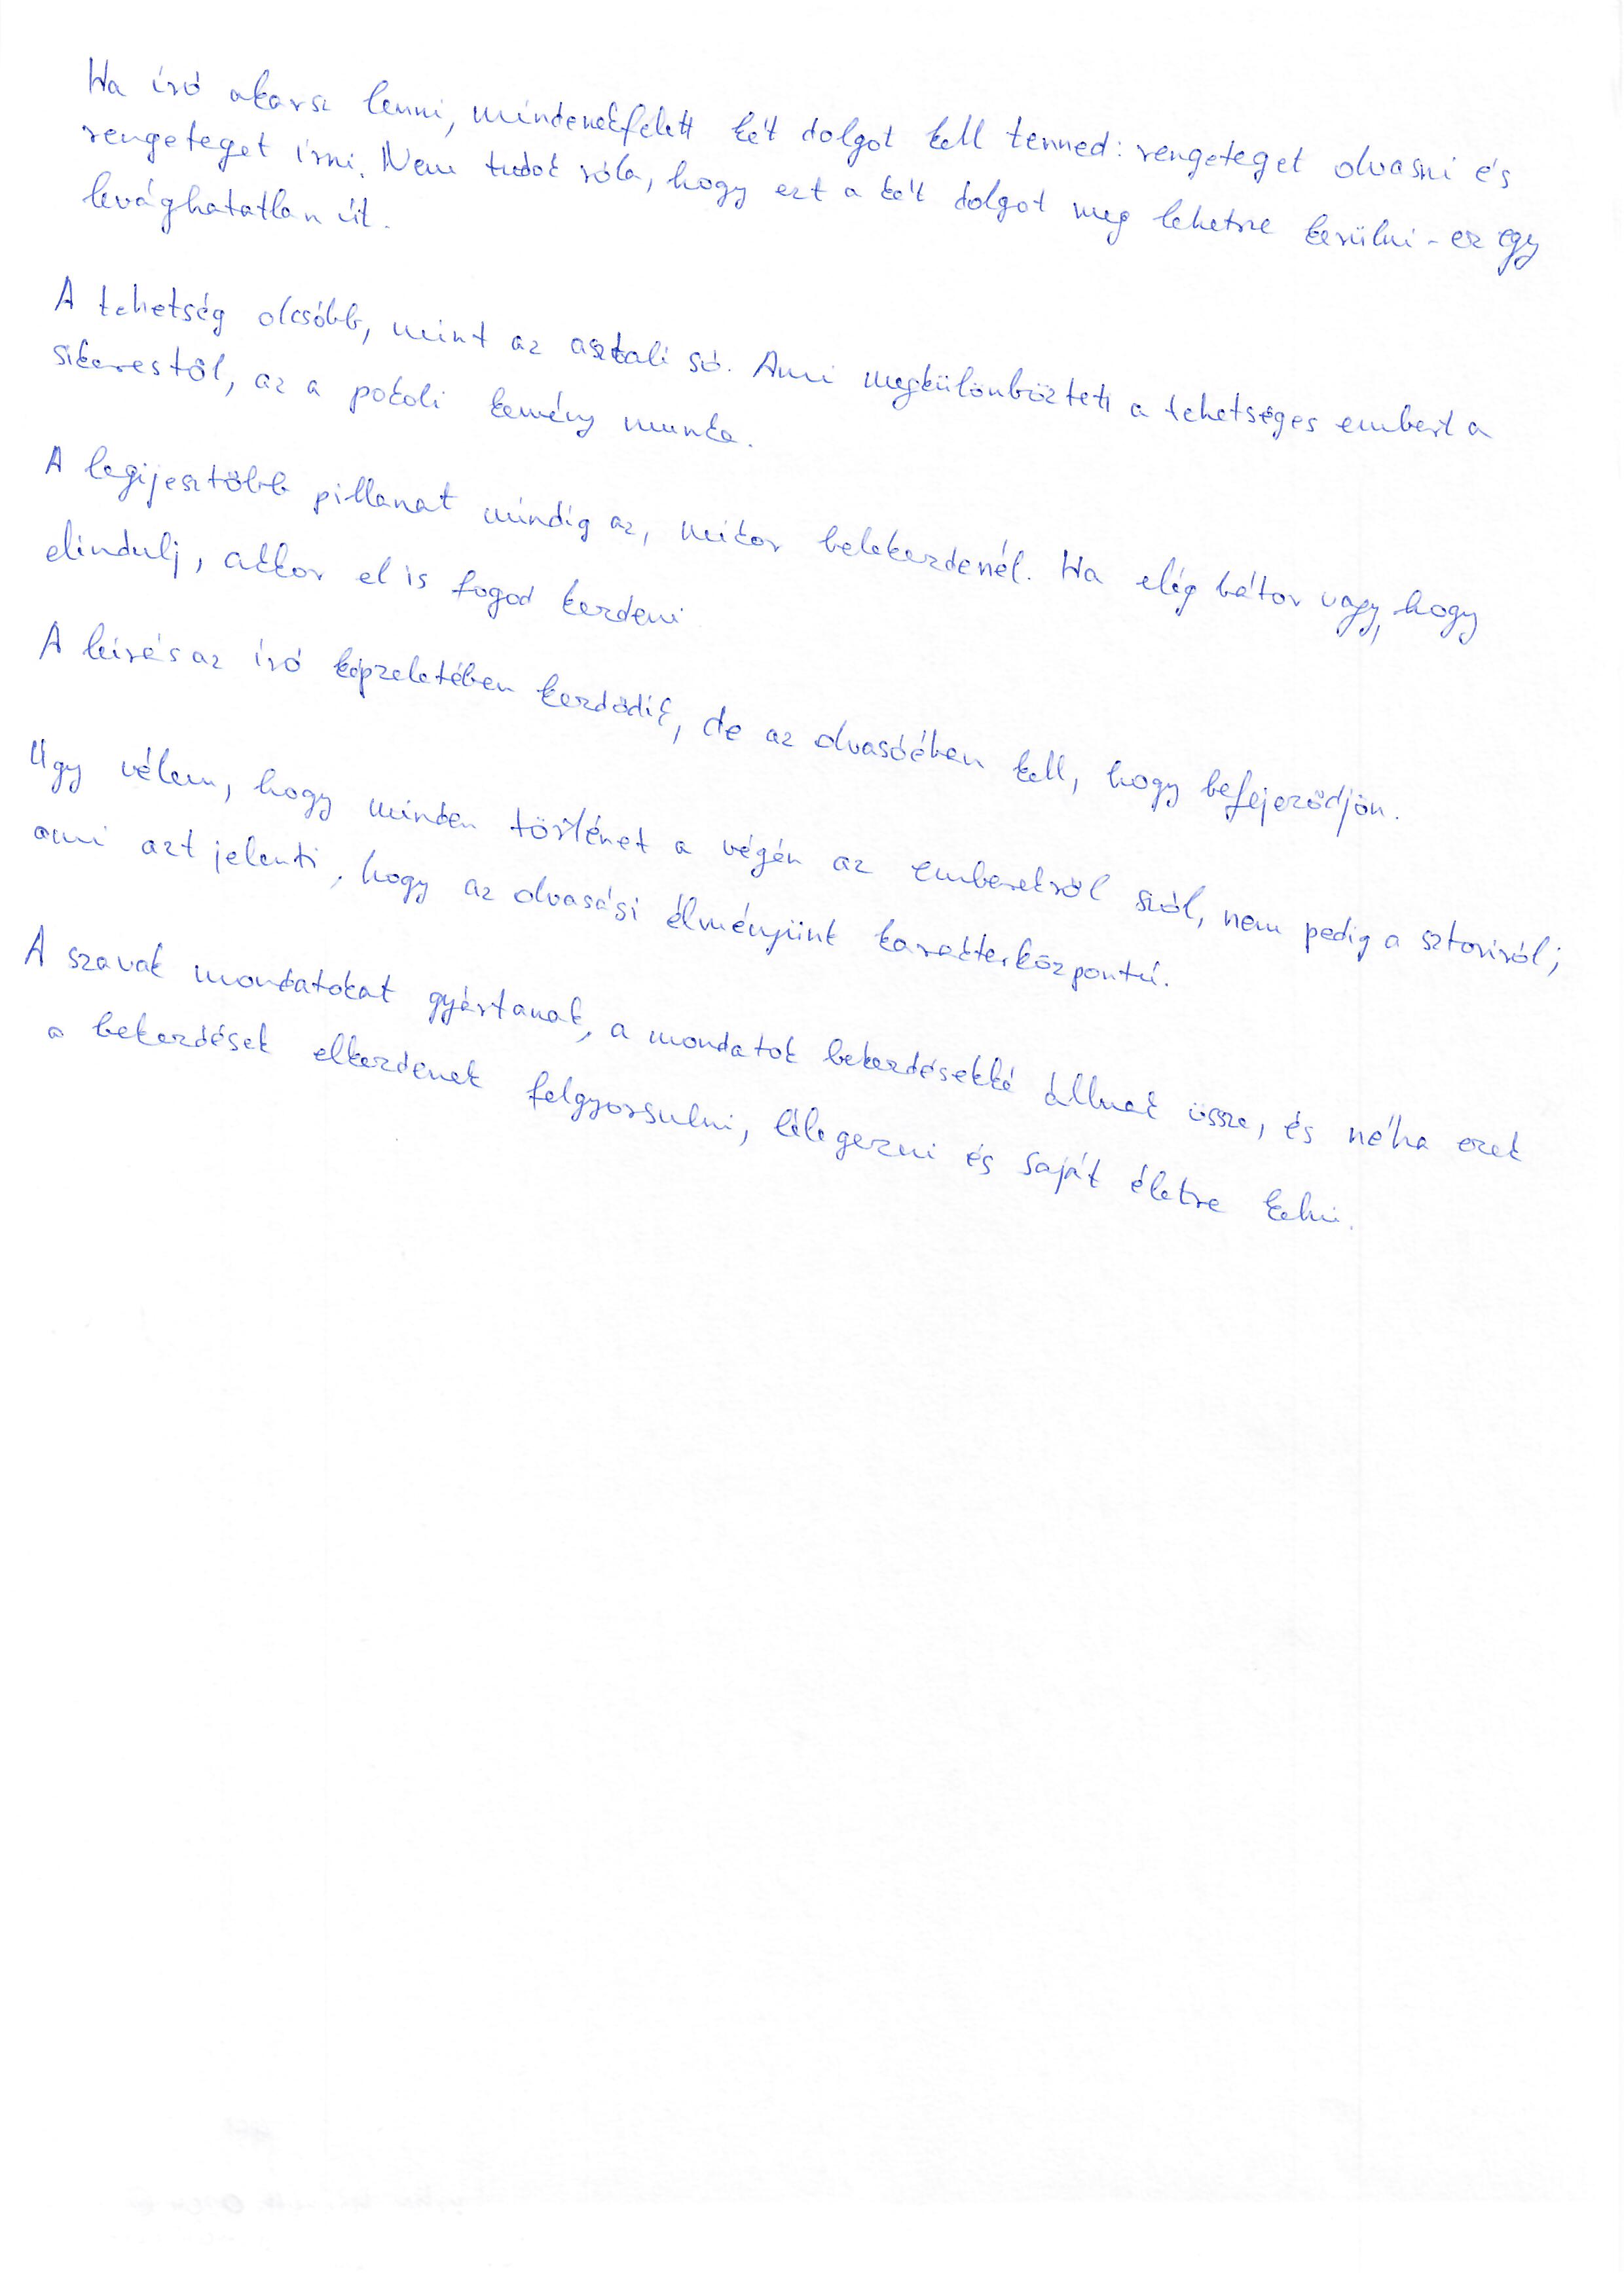 Ha író akarsz lenni, mindenekfelett két dolgot kell tenned: rengeteget olvasni és
rengeteget írni. Nem tudok róla, hogy ezt a két dolgot meg lehetne kerülni - ez egy
levághatatlan út.
A tehetség olcsóbb, mint az asztali só. Ami megkülönbözteti a tehetséges embert a
sikerestől, az a pokoli kemény munka.
A legijesztőbb pillanat mindig az, mikor belekezdenél. Ha elég bátor vagy, hogy
elindulj, akkor el is fogod kezdeni
A leírás az író képzeletében kezdődik, de az olvasóéban kell, hogy befejeződjön.
Úgy vélem, hogy minden történet a végén az emberekről szól, nem pedig a sztoriról;
ami azt jelenti, hogy az olvasási élményünk karakterközpontú.
A szavak mondatokat gyártanak, a mondatok bekezdésekké állnak össze, és néha ezek
a bekezdések elkezdenek felgyorsulni, lélegezni és saját életre kelni.